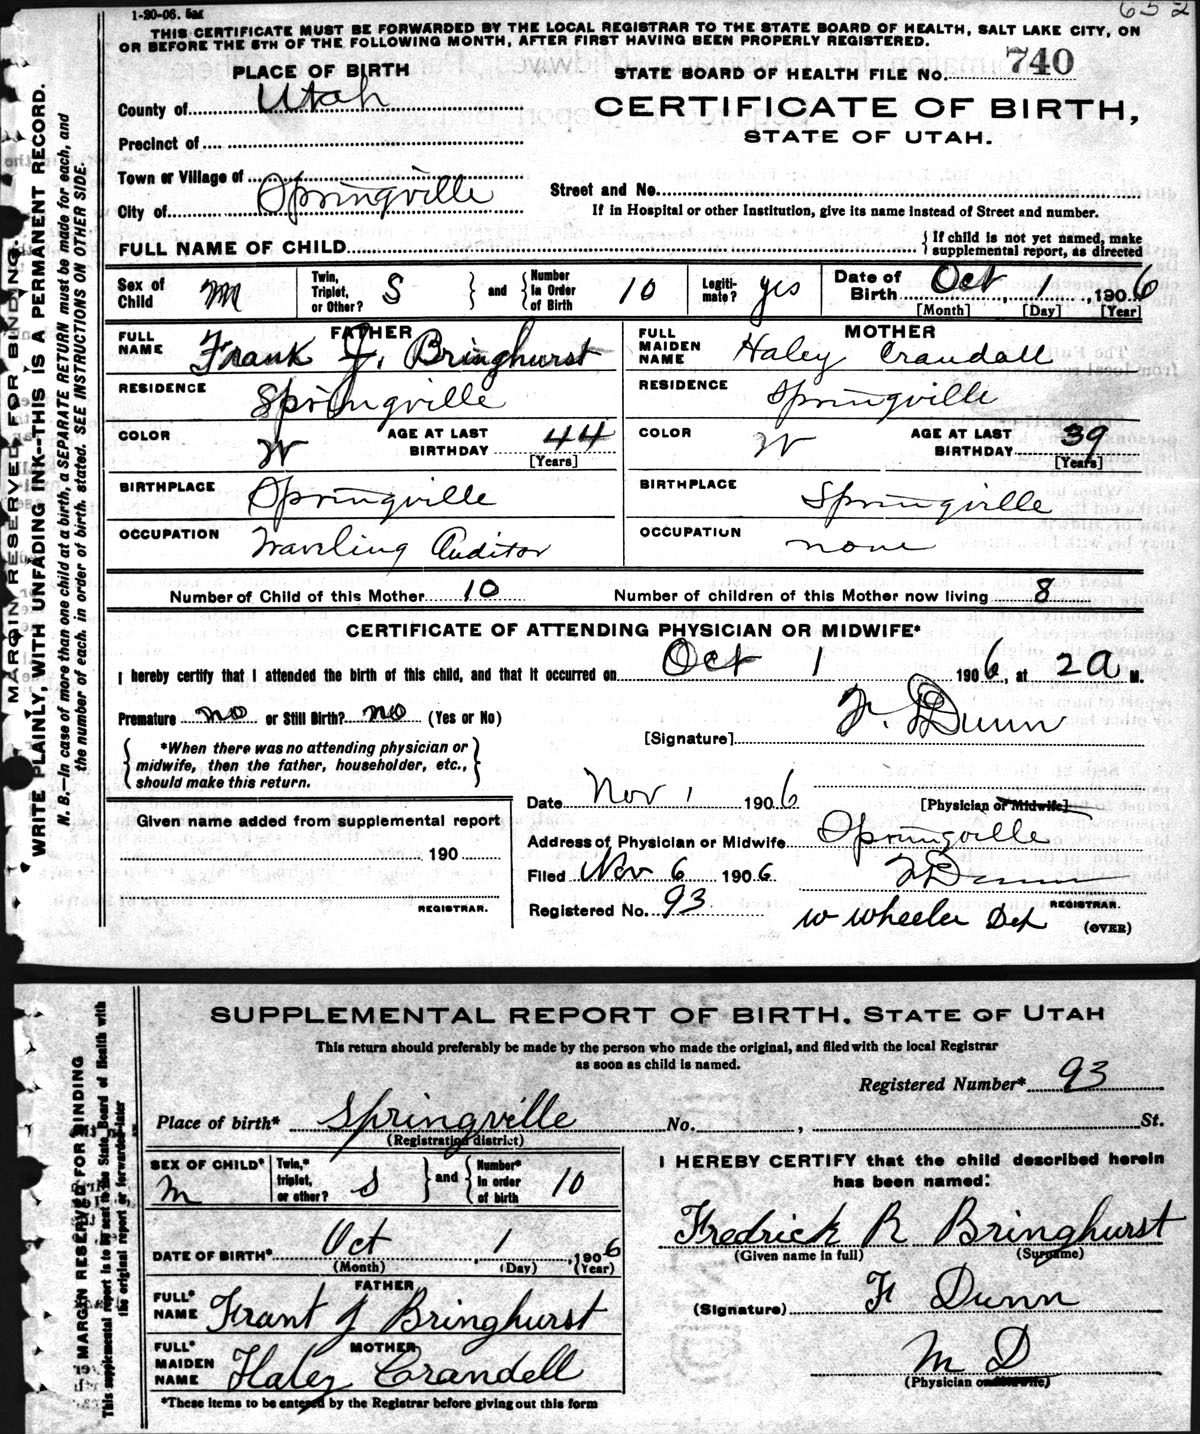 1-20-06. 5m
652
THIS CERTIFICATE MUST BE FORWARDED BY THE LOCAL REGISTRAR TO THE STATE BOARD OF HEALTH, SALT LAKE CITY, ON
OR BEFORE THE 5TH OF THE FOLLOWING MONTH, AFTER FIRST HAVING BEEN PROPERLY REGISTERED.
PLACE OF BIRTH
STATE BOARD OF HEALTH FILE No. 740
County of Utah
CERTIFICATE OF BIRTH,
STATE OF UTAH.
Precinct of
Town or Village of
City of Springville
Street and No.
If in Hospital or other Institution, give its name instead of Street and number.
FULL NAME OF CHILD
{ If child is not yet named, make
supplemental report, as directed
Sex of Child M
Twin, Triplet, or Other? S } and { Number in Order of Birth 10
Legiti-mate? yes
Date of Birth Oct 1, 1906
[Month] [Day] [Year]
FATHER
FULL NAME Frank J. Bringhurst
RESIDENCE Springville
COLOR W
AGE AT LAST BIRTHDAY 44
[Years]
BIRTHPLACE Springville
OCCUPATION Traveling Auditor
MOTHER
FULL MAIDEN NAME Haley Crandall
RESIDENCE Springville
COLOR W
AGE AT LAST BIRTHDAY 39
[Years]
BIRTHPLACE Springville
OCCUPATION none
Number of Child of this Mother 10
Number of children of this Mother now living 8
CERTIFICATE OF ATTENDING PHYSICIAN OR MIDWIFE*
I hereby certify that I attended the birth of this child, and that it occurred on Oct 1 1906, at 2a M.
Premature no or Still Birth? no (Yes or No)
[Signature] F. Dunn
{ *When there was no attending physician or
midwife, then the father, householder, etc.,
should make this return. }
Date Nov 1 1906
[Physician or Midwife]
Given name added from supplemental report
190
REGISTRAR.
Address of Physician or Midwife Springville
Filed Nov 6 1906
REGISTRAR.
Registered No. 93
W Wheeler Dep
(OVER)
MARGIN RESERVED FOR BINDING.
WRITE PLAINLY, WITH UNFADING INK--THIS IS A PERMANENT RECORD.
N. B.—In case of more than one child at a birth, a SEPARATE RETURN must be made for each, and
the number of each, in order of birth, stated. SEE INSTRUCTIONS ON OTHER SIDE.
SUPPLEMENTAL REPORT OF BIRTH, STATE OF UTAH
This return should preferably be made by the person who made the original, and filed with the local Registrar
as soon as child is named.
Registered Number* 93
Place of birth* Springville No. , St.
(Registration district)
SEX OF CHILD* M
Twin,* triplet, or other? S } and { Number* in order of birth 10
DATE OF BIRTH* Oct 1, 1906
(Month) (Day) (Year)
FATHER
FULL* NAME Frant J Bringhurst
MOTHER
FULL* MAIDEN NAME Haley Crandell
*These items to be entered by the Registrar before giving out this form
I HEREBY CERTIFY that the child described herein
has been named:
Fredrick R Bringhurst
(Given name in full) (Surname)
(Signature) F Dunn
M D
(Physician or Midwife)
MARGIN RESERVED FOR BINDING
This supplemental report is to be sent to the State Board of Health with
the original report or forwarded later